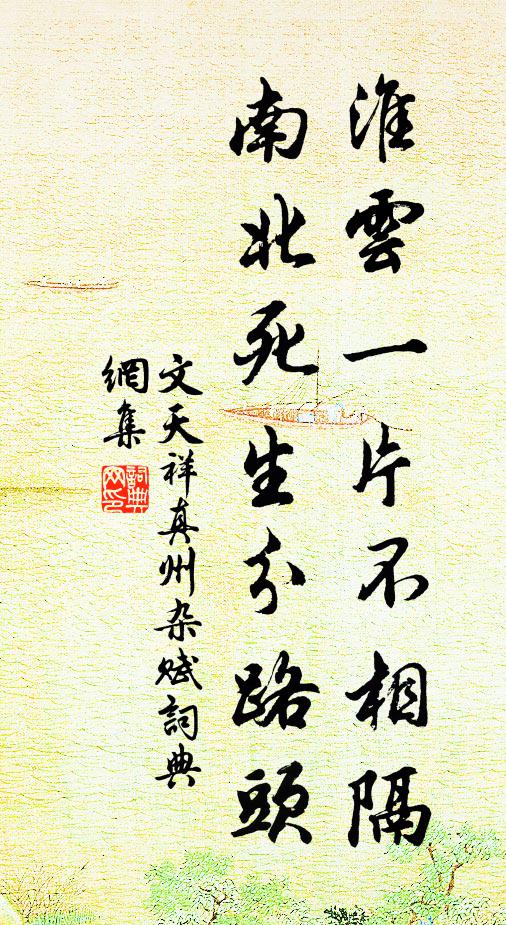 淮雲一片不相隔
南北死生分路頭
文天祥真州杂赋詞典
網集
詞典
网印